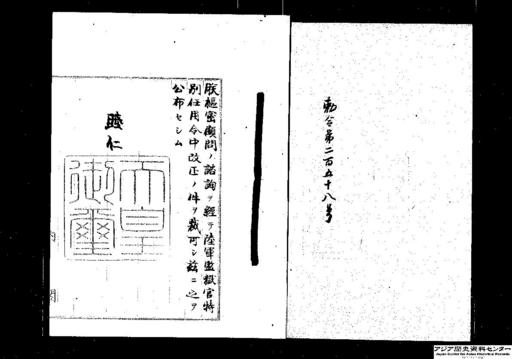 勅令第二百五十八号
朕枢密顧問ノ諮詢ヲ経テ陸軍監獄官特
別任用令中改正ノ件ヲ裁可シ茲ニ之ヲ
公布セシム
睦仁
天皇御璽
内閣
アジア歴史資料センター
Japan Center for Asian Historical Records